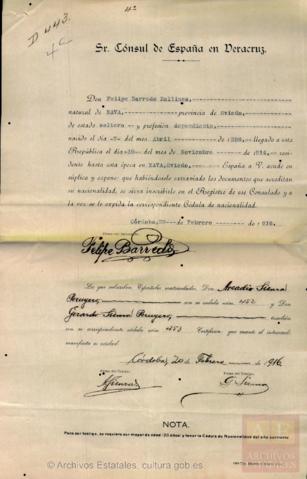 4ª
D 443.
4ª
Sr. Cónsul de España en Veracruz.
Don Felipe Barredo Ballines,
natural de NAVA, provincia de Oviedo,
de estado soltero y profesión dependiente,
nacido el día de mes Abril de llegado a esta
República el día del mes de Noviembre de 1914, y resi-
diendo hasta esta época en NAVA, Oviedo, España a V. acude en
súplica y expone: que habiéndosele extraviado los documentos que acreditan
su nacionalidad, se sirva inscribirlo en el Registro de ese Consulado y a
la vez se le expida la correspondiente Cédula de nacionalidad.
Córdoba, de Febrero de 1916.
Felipe Barredo
Los que subscriben, Españoles matriculados, Don Arcadio Sierra
con su cédula núm. 452 y Don
Gerardo Sierra también
con su correspondiente cédula núm. 453 Certifican que cuanto el interesado
manifiesta es verdad.
Córdoba, 20 de Febrero de 1916
Firma del Testigo, Firma del Testigo,
A. Sierra G. Sierra
NOTA.
Para ser testigo, se requiere ser mayor de edad (23 años) y tener la Cédula de Nacionalidad del año corriente
ARCHIVOS
© Archivos Estatales, cultura.gob.es